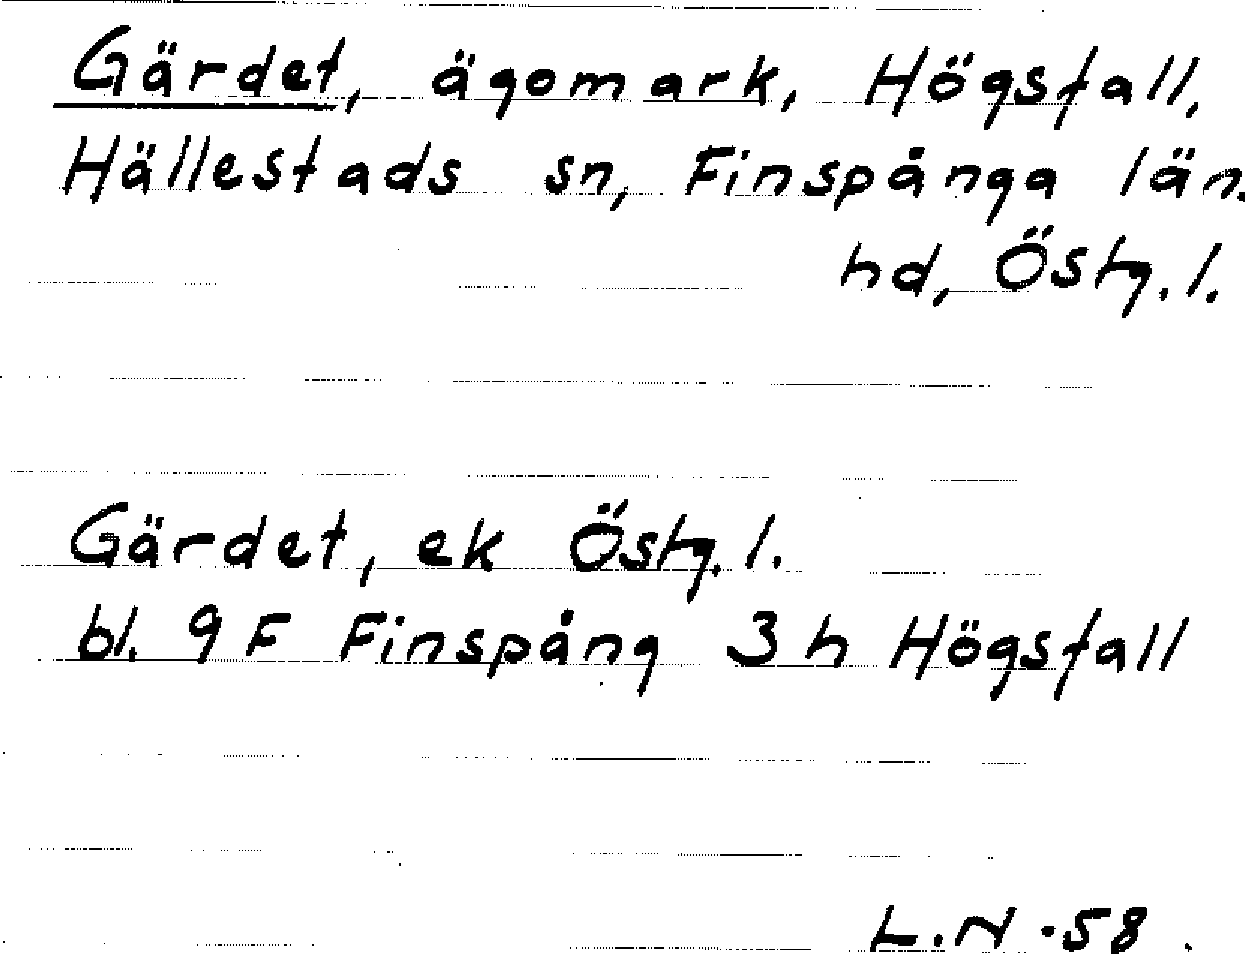 Gärdet, ägomark, Högsfall,
Hällestads sn, Finspånga län.
hd, Östg. l.
Gärdet, ek Östg. l.
bl. 9 F Finspång 3 h Högsfall
L.N -58.